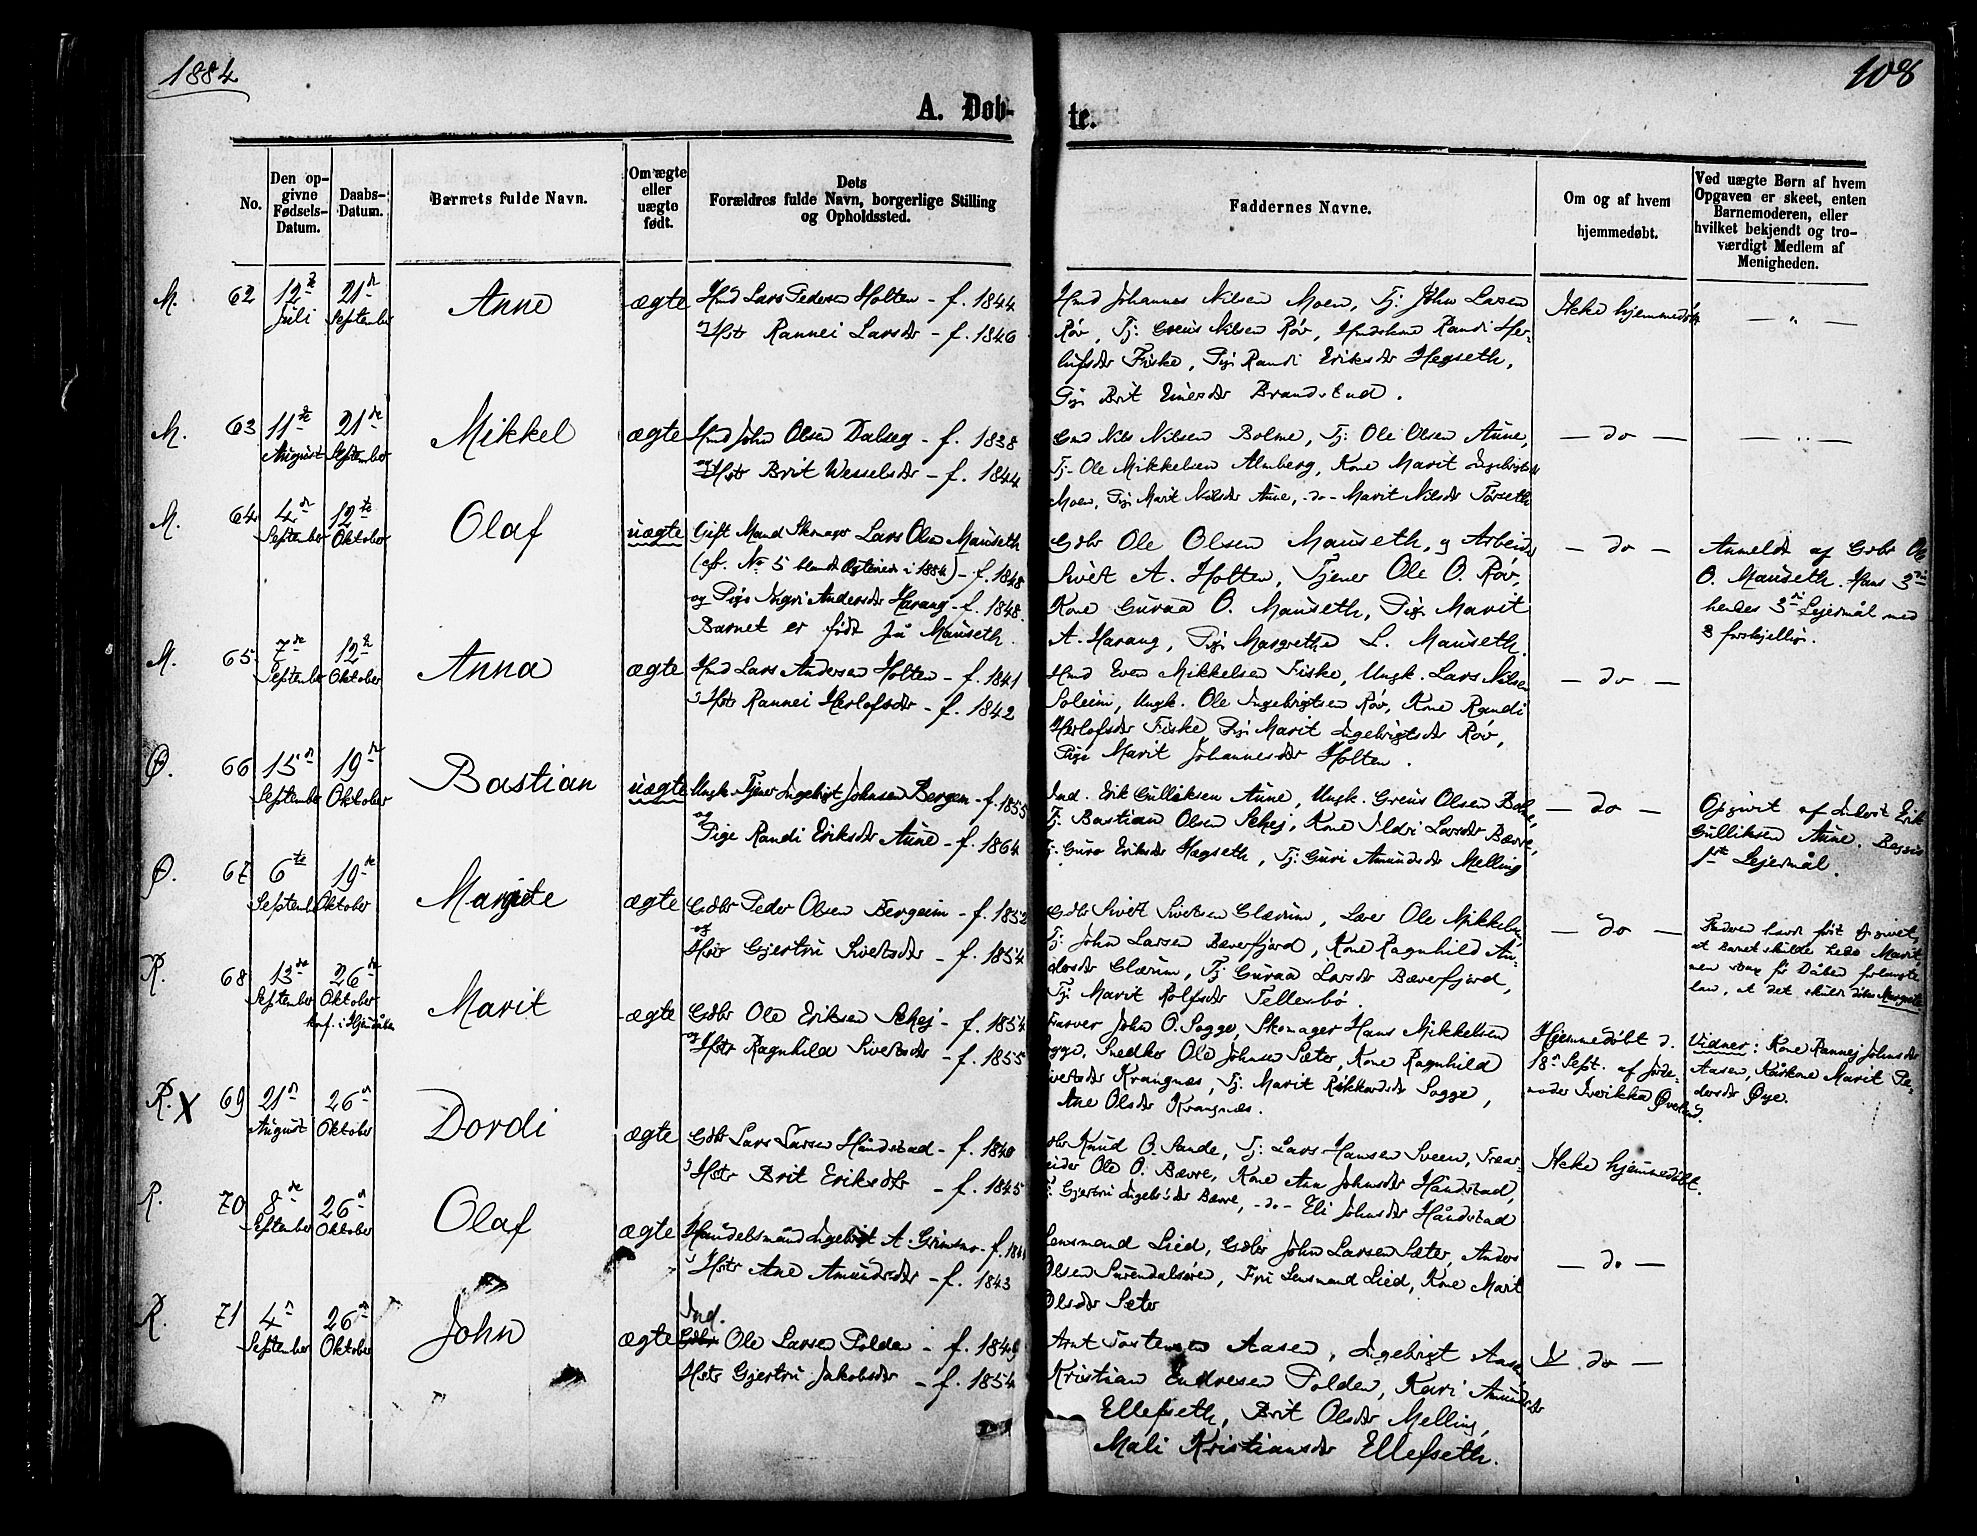 1884
108
A. Døb-
te.
No.
Den op-
givne
Fødsels-
Datum.
Daabs-
Datum.
Barnets fulde Navn.
Om ægte
eller
uægte
født.
Dets
Forældres fulde Navn, borgerlige Stilling
og Opholdssted.
Faddernes Navne.
Om og af hvem
hjemmedøbt.
Ved uægte Børn af hvem
Opgaven er skeet, enten
Barnemoderen, eller
hvilket bekjendt og tro-
værdigt Medlem af
Menigheden.
M. 62 12te Juli 21de September Anne ægte
Hmd Lars Pedersen Holten - f. 1844
Hstr Rannei Larsdr - f. 1846
Hmd Johannes Nilsen Moen, Tj: John Larsen
Røv, Tj: Greus Nilsen Røv, Hmdskone Randi Her-
lufsdr Fiske, Pig: Randi Eriksdr Hegseth,
Pig: Brit Einersdr Brandstad.
Ikke hjemmedøbt
M. 63 11te August 21de September Mikkel ægte
Hmd John Olsen Dalseg - f. 1838
og Hstr Brit Wesselsdr - f. 1844
Gmd Nils Nilsen Bolme, Tj: Ole Olsen Aune,
Tj- Ole Mikkelsen Almberg, Kone Marit Ingebrigtsdr
Moen, Pig: Marit Nilsdr Aune, -do- Marit Nilsdr Torseth
- do -
M. 64 4de September 12te Oktober Olaf uægte
Gift Mand Skomager Lars Olsen Mauseth
(cfr. No 5 blandt Ægteviede i 1884) - f. 1848
og Pige Ingri Andersdr Harang - f. 1848.
Barnet er født på Mauseth.
Gdbr Ole Olsen Mauseth, og Arbeider
Sivert A. Holten, Tjener Ole O. Røv,
Kone Guraa O. Mauseth, Pig: Marit
A. Harang, Pig: Margrethe L. Mauseth.
- do -
Anmeldt af Gdbr Ole
O. Mauseth. Hans 3die
hendes 3de Lejermål med
3 forskjellige.
M. 65 7de September 12te Oktober Anna ægte
Hmd Lars Andersen Holten - f. 1841
Hstr Rannei Herlofsdr - f. 1842
Hmd Even Mikkelsen Fiske, Ungk. Lars Nilsen
Soleim, Ungk. Ole Ingebrigtsen Røv, Kone Randi
Herlofsdr Fiske, Pig: Marit Ingebrigtsdr Røv,
Pige Marit Johannesdr Holten.
- do -
Ø. 66 15de September 19de Oktober Bastian uægte
Ungk. Tjener Ingebrigt Johnsen Bergem - f. 1855
og Pige Randi Eriksdr Aune - f. 1864
Ind. Erik Gulliksen Aune, Ungk. Greus Olsen Bolme,
Tj: Bastian Olsen Skej, Kone Ildri Larsdr Bævre,
Tj: Guro Eriksdr Hægseth, Tj: Guri Amundsdr Melling
- do -
Opgivet af Inderst Erik
Gulliksen Aune. Begges
1ste Lejermål.
Ø. 67 6te September 19de Oktober Margrete ægte
Gdbr Peder Olsen Bergeim - f. 1852
og Hstr Gjertru Sivertsdr - f. 1854
Gdbr Sivert Sivertsen Glærum, Lærer Ole Mikkelsen,
Tj: John Larsen Bæverfjord, Kone Ragnhild An-
dersdr Glærum, Tj: Guraa Larsdr Bæverfjord,
Tj: Marit Rolfsdr Tellesbø.
- do -
Faderen havde først opgivet,
at Barnet skulde hede Marit,
men strax før Dåben forlangte
han, at det skulde døbes Margrete
R. 68 13de September 26de Oktober Marit ægte
Gdbr Ole Eriksen Skej - f. 1854
og Hstr Ragnhild Sivertsdr - f. 1855
Farver John O. Sogge, Skomager Hans Mikkelsen
Sogge, Snedker Ole Johnsen Sæter, Kone Ragnhild
Sivertsdr Krangnæs, Tj: Marit Rikkardsdr Sogge,
Ane Olsdr Krangnæs.
Hjemmedøbt d.
18de Sept. af Jorde-
moder Sverikka Øverland.
Vidner: Kone Rannej Johnsdr
Aasen, Kårkone Marit Pe-
dersdr Øye.
R. X 69 21de August 26de Oktober Dordi ægte
Gdbr Lars Larsen Håndstad - f. 1840
Hstr Brit Eriksdtr - f. 1845
Gdbr Knud O. Sande, Tj: Lars Hansen Sveen, Træar-
beider Ole O. Bævre, Kone Ane Johnsdr Håndstad,
Tj: Gjertru Ingebr:dr Bævre, -do- Eli Johnsdr Håndstad
Ikke hjemmedøbt.
R. 70 8de September 26de Oktober Olaf ægte
Handelsmand Ingebrigt A. Grimsmo - f.
Hstr Ane Amundsdr - f. 1843
Lensmand Lied, Gdbr John Larsen Sæter, Anders
Olsen Surendalsøren, Fru Lensmand Lied, Kone Marit
Olsdr Sæter
- do -
R. 71 4de September 26de Oktober John ægte
Ind.
Gdbr Ole Larsen Polden - f. 1849
Hstr Gjertru Jakobsdr - f. 1854
Arnt Torstensen Aasen, Ingebrigt Aasen
Kristian Endresen Polden, Kari Amundsdr
Ellefseth, Brit Olsdr Melling,
Mali Kristiansdr Ellefseth.
do -